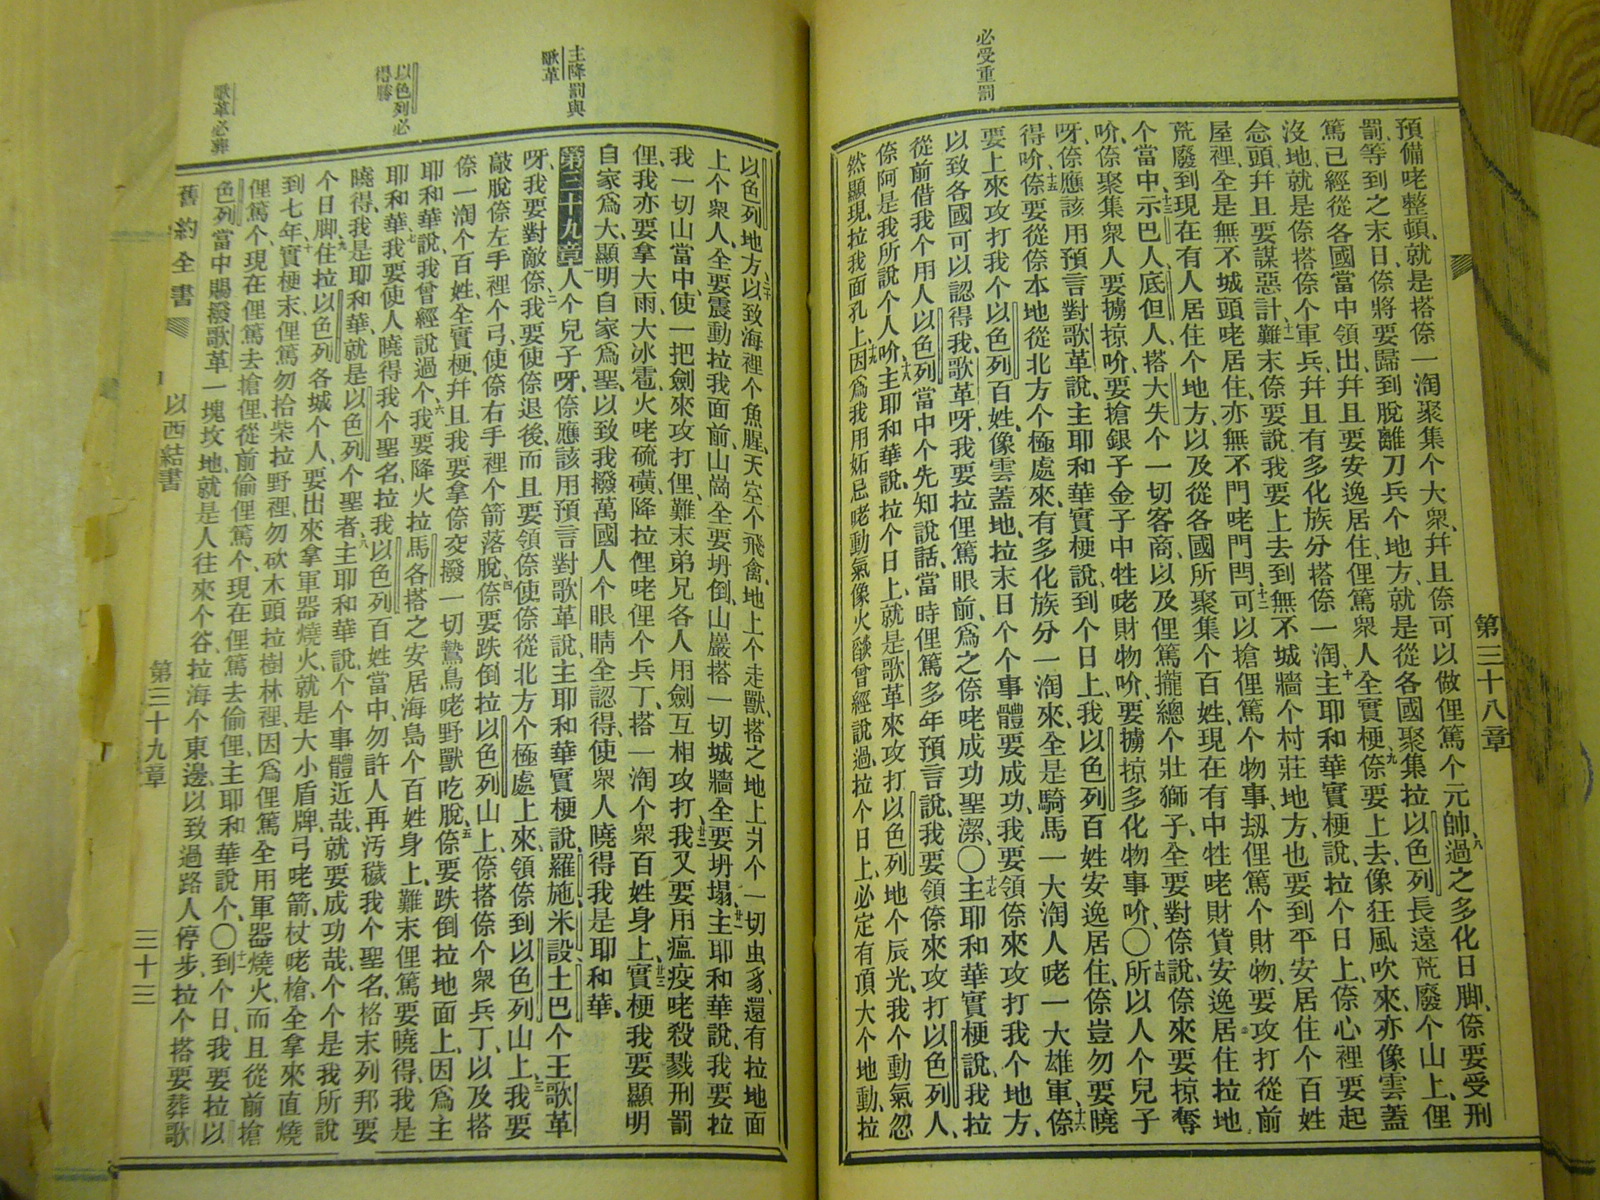 必受重罰
第三十八章
預備咾整頓、就是搭倷一淘聚集个大衆、幷且倷可以做俚篤个元帥、八過之多化日脚、倷要受刑
罰、等到之末日、倷將要歸到脫離刀兵个地方、就是從各國聚集拉以色列長遠荒廢个山上、俚
篤已經從各國當中領出、幷且要安逸居住、俚篤衆人全實梗、九倷要上去、像狂風吹來、亦像雲蓋
沒地、就是倷搭倷个軍兵、幷且有多化族分搭倷一淘、十主耶和華實梗說、拉个日上、倷心裡要起
念頭、幷且要謀惡計、十一難末倷要說、我要上去、到無不城牆个村莊地方、也要到平安居住个百姓
屋裡、全是無不城頭咾居住、亦無不門咾門閂、十二可以搶俚篤个物事、刼俚篤个財物、要攻打從前
荒廢到現在有人居住个地方、以及從各國所聚集个百姓、現在有中牲咾財貨、安逸居住拉地
个當中、十三示巴人、底但人、搭大失个一切客商、以及俚篤攏總个壯獅子、全要對倷說、倷來要掠奪
吤、倷聚集衆人要擄掠吤、要搶銀子金子中牲咾財物吤、要擄掠多化物事吤、〇十四所以人个兒子
呀、倷應該用預言對歌革說、主耶和華實梗說、到个个日上、我以色列百姓安逸居住、倷豈勿要曉
得吤、十五倷要從倷本地從北方个極處來、有多化族分一淘來、全是騎馬一大淘人咾一大雄軍、十六倷
要上來攻打我个以色列百姓、像雲蓋地、拉末日个个事體要成功、我要領倷來攻打我个地方、
以致各國可以認得我、歌革呀、我要拉俚篤眼前、爲之倷咾成功聖潔、〇十七主耶和華實梗說、我拉
從前借我个用人以色列當中个先知說話、當時俚篤多年預言說、我要領倷來攻打以色列人、
倷阿是我所說个人吤、十八主耶和華說、拉个日上、就是歌革來攻打以色列地个辰光、我个動氣忽
然顯現、拉我面孔上、十九因爲我用妬忌咾動氣像火燄曾經說過、拉个日上、必定有頂大个地動、拉
主降罰與
歌革
以色列必
得勝
歌革必葬
以色列地方、二十以致海裡个魚腥、天空个飛禽、地上个走獸、搭之地上爿个一切虫豸、還有拉地面
上个衆人、全要震動拉我面前、山崗全要坍倒、山巖搭一切城牆全要坍塌、廿一主耶和華說、我要拉
我一切山當中、使一把劍來攻打俚、難末弟兄各人用劍互相攻打、廿二我又要用瘟疫咾殺戮刑罰
俚、我亦要拿大雨、大冰雹、火咾硫磺、降拉俚咾俚个兵丁、搭一淘个衆百姓身上、廿三實梗我要顯明
自家爲大、顯明自家爲聖、以致我撥萬國人个眼睛全認得、使衆人曉得我是耶和華、
第三十九章 一人个兒子呀、倷應該用預言對歌革說、主耶和華實梗說、羅施米設土巴个王歌革
呀、我要對敵倷、二我要使倷退後、而且要領倷、使倷從北方个極處上來、領倷到以色列山上、三我要
敲脫倷左手裡个弓、使倷右手裡个箭落脫、四倷要跌倒拉以色列山上、倷搭倷个衆兵丁、以及搭
倷一淘个百姓全實梗、幷且我要拿倷交撥一切鷙鳥咾野獸吃脫、五倷要跌倒拉地面上、因爲主
耶和華說、我曾經說過个、六我要降火拉馬各、搭之安居海島个百姓身上、難末俚篤要曉得我是
耶和華、七我要使人曉得我个聖名、拉我以色列百姓當中、勿許人再汚穢我个聖名、格末列邦要
曉得、我是耶和華、就是以色列个聖者、八主耶和華說、个个事體近哉、就要成功哉、个个是我所說
个日脚、九住拉以色列各城个人、要出來拿軍器燒火、就是大小盾牌弓咾箭杖咾槍、全拿來直燒
到七年、十實梗末、俚篤勿拾柴拉野裡、勿砍木頭拉樹林裡、因爲俚篤全用軍器燒火、而且從前搶
俚篤个、現在俚篤去搶俚、從前偷俚篤个、現在俚篤去偷俚、主耶和華說个、〇十一到个日、我要拉以
色列當中、賜撥歌革一塊坟地、就是人往來个谷、拉海个東邊、以致過路人停步、拉个搭要葬歌
舊約全書 以西結書 第三十九章 三十三